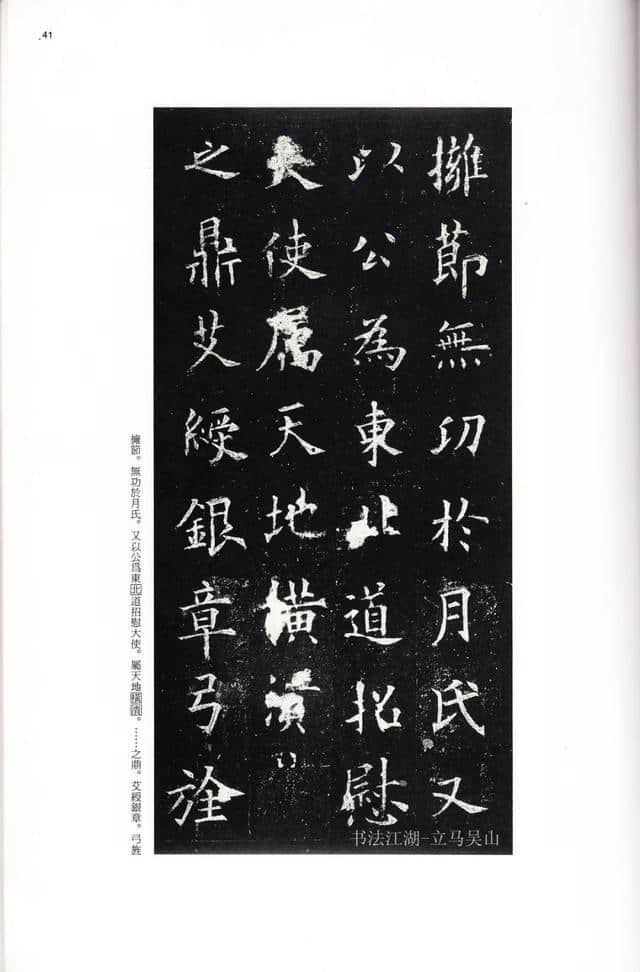 41
擁節無功於月氏又
以公為東北道招慰
大使属天地橫潰
之鼎艾綬銀章弓旌
擁節。無功於月氏。又以公爲東北道招慰大使。屬天地橫潰。……之鼎。艾綬銀章。弓旌
书法江湖-立马吴山